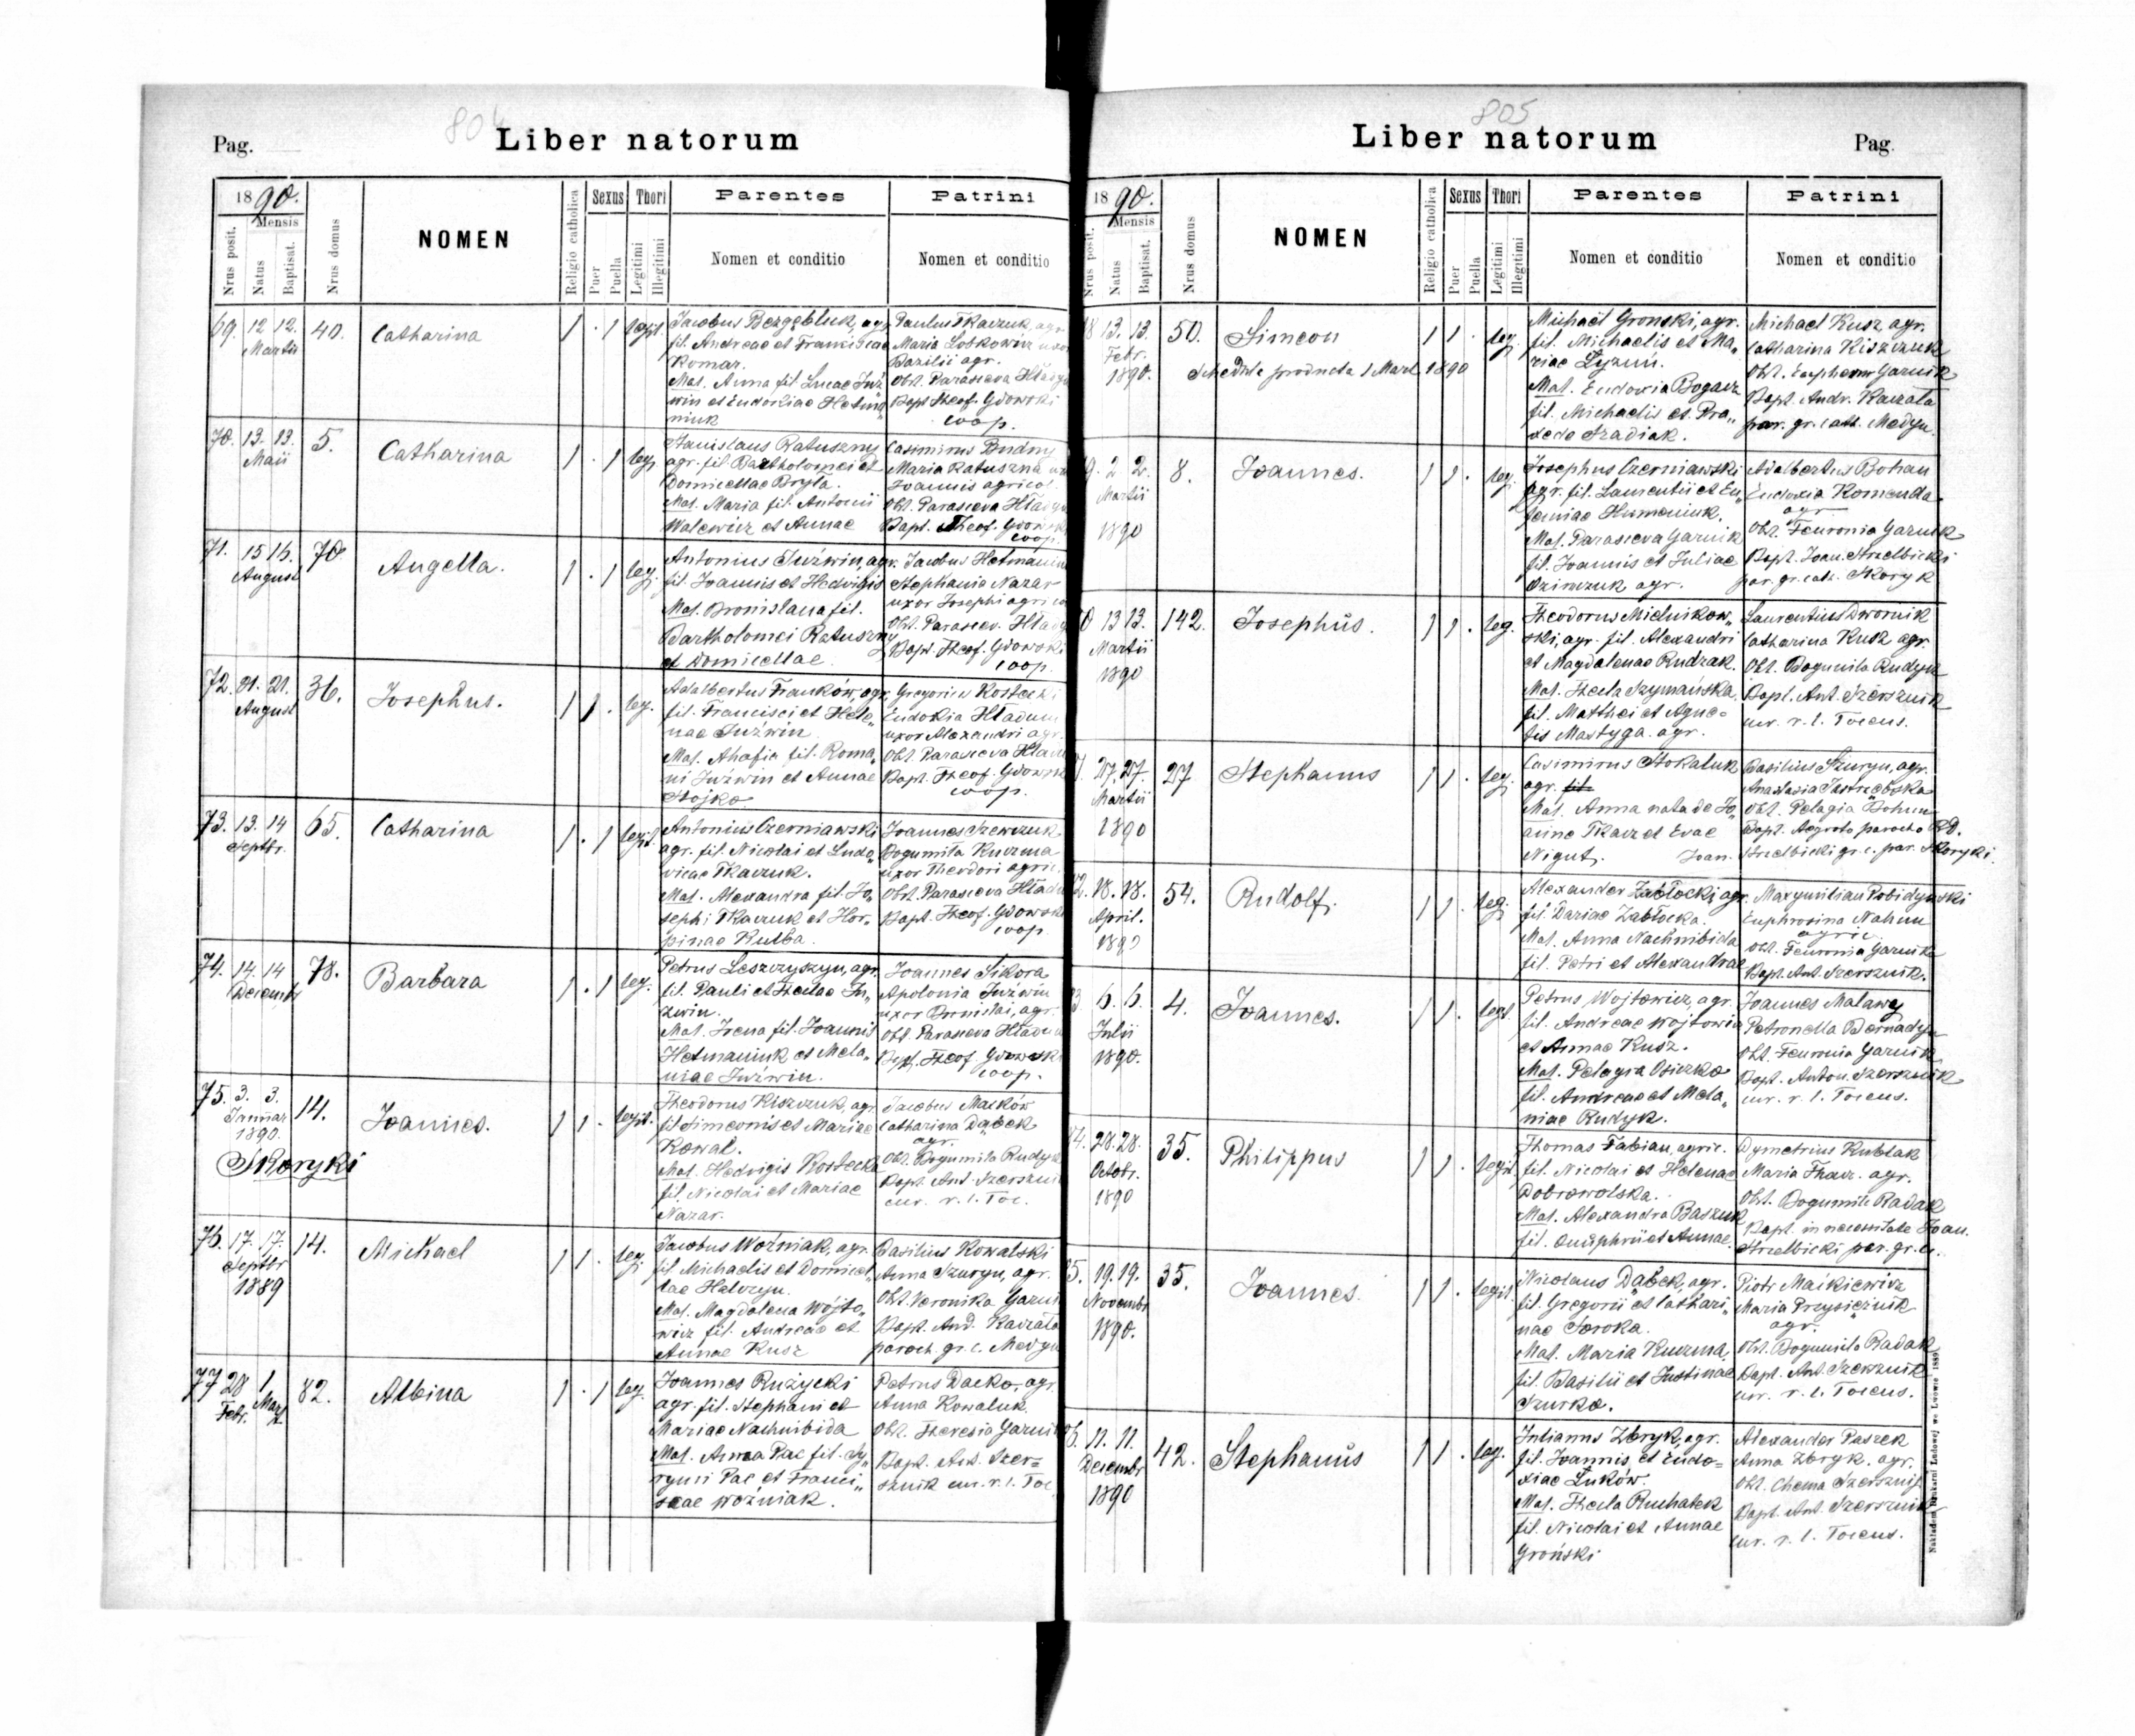 804
Pag.
Liber natorum
1890.
Mensis
Nrus posit.
Natus
Baptisat.
Nrus domus
NOMEN
Religio catholica
Sexus
Puer
Puella
Thori
Legitimi
Illegitimi
Parentes
Nomen et conditio
Patrini
Nomen et conditio
69. 12 12. Martii 40. Catharina 1 . 1 legit.
Jacobus Bezgębluk, agr.
fil. Andreae et Franciscae
Komar.
Mat. Anna fil. Lucae Juź
win et Eudoxiae Hetma
niuk
Paulus Tkaczuk, agr.
Maria Loskowicz uxor
Bazilii agr.
Obst. Parasceva
Bapt. Theof. Gdowski
coop.
70. 13. 13. Maii 5. Catharina 1 . 1 leg.
Stanislaus Ratuszny
agr. fil. Bartholomei et
Domicellae Bryła.
Mat. Maria fil. Antonii
Walewicz et Annae
Casimirus Budny
Maria Ratuszna
Joannis agricol.
Obt. Parasceva
Bapt. Theof. Gdowski
coop.
71. 15 16. August 70 Angella. 1 . 1 leg.
Antonius Juźwin, agr.
fil. Joannis et Hedwigis
Mat. Bronislava fil.
Bartholomei Ratuszny
et Domicellae.
Jacobus Hetmaniuk
Stephania Nazar
uxor Josephi agricol
Obt. Parascev.
Bapt. Theof. Gdowski
coop.
72. 21. 21. August 36. Josephus. 1 1 . leg.
Adalbertus Franków, agr.
fil. Francisci et Hele„
nae Juźwin
Mat. Ahafia fil. Roma„
ni Juźwin et Annae
Stojko
Gregorius Kostecki
Eudokia Hładun
uxor Alexandri agr.
Obt. Parasceva
Bapt. Theof. Gdowski
coop.
73. 13. 14 Septbr. 65. Catharina 1 . 1 legit.
Antonius Czerniawski
agr. fil. Nicolai et Ludo„
vicae Tkaczuk.
Mat. Alexandra fil. Jo„
sephi Tkaczuk et Hor„
pinae Kulba.
Joannes Szewczuk
Bogumiła Kuczma
uxor Theodori agric.
Obt. Parasceva
Bapt. Theof. Gdowski
coop.
74. 14. 14 Decembr 78. Barbara 1 . 1 leg.
Petrus Leszczyszyn, agr.
fil. Pauli et Theclae Ju„
źwin.
Mat. Irena fil. Joannis
Hetmaniuk et Mela„
niae Juźwin.
Joannes Sikora
Apolonia Juźwin
uxor Bronislai, agr.
Obt. Parasceva
Bapt. Theof. Gdowski
coop.
75. 3. 3. Januar 1890. 14. Joannes. 1 1 . legit.
Skoryki
Theodorus Kiszczuk, agr.
fil. Simeonis et Mariae
Kowal.
Mat. Hedvigis Kostecka
fil. Nicolai et Mariae
Nazar.
Jacobus Maików
Catharina Dąbek
agr.
Obt. Bogumiła Rudyk
Bapt. Ant. Szersznik
cur. r. l. Toc.
76. 17. 17. Septbr 1889 14. Michael 1 1 . leg.
Jacobus Woźniak, agr.
fil. Michaelis et Domicel„
lae Halczyn.
Mat. Magdalena Wójto„
wicz fil. Andreae et
Annae Kusz
Basilius Kowalski
Anna Szuryn, agr.
Obt. Veronika Garnik
Bapt. And. Kaczala
paroch. gr. c. Medyn
77 28 Febr. 1 Mart. 82. Albina 1 . 1 leg.
Joannes Rużycki
agr. fil. Stephani et
Mariae Nachnibida
Mat. Anna Pac fil. Sy„
ryni Pac et Franci„
scae Woźniak.
Petrus Dacko, agr.
Anna Kowaluk
Obt. Theresia Garnik
Bapt. Ant. Szer=
sznik cur. r. l. Toc.
805
Liber natorum
Pag.
1890.
Mensis
Nrus posit.
Natus
Baptisat.
Nrus domus
NOMEN
Religio catholica
Sexus
Puer
Puella
Thori
Legitimi
Illegitimi
Parentes
Nomen et conditio
Patrini
Nomen et conditio
8 13. 13. Febr. 1890. 50. Simeon 1 1 . leg.
Schedula producta 1 Mart. 1890
Michael Gronski, agr.
fil. Michaelis et Ma„
riae Łyzun.
Mat. Eudoxia Bogacz
fil. Michaelis et Pra„
xede Szadiak.
Michael Kusz, agr.
Catharina Kiszczuk
Obt. Garnik
Bapt. Andr. Kaczala
par. gr. cath. Medyn.
9. 2. 2. Martii 1890 8. Joannes. 1 1 . leg.
Josephus Czerniawski
agr. fil. Laurentii et Eu„
feniae Humeniuk.
Mat. Parasceva Garnik
fil. Joannis et Juliae
agr.
Adalbertus Bohan
Eudoxia Komenda
agr
Obt. Feuronia Garnik
Bapt. Joan. Strzelbicki
par. gr. cath. Skoryk
0 13 13. Martii 1890 142. Josephus. 1 1 . leg.
Theodorus Mielnikow„
ski, agr. fil. Alexandri
et Magdalenae Rudzak.
Mat. Thecla Szymańska
fil. Matthei et Agne=
tis Mastyga agr.
Laurentius Dwornik
Catharina Kusz agr.
Obt. Bogumila Rudyk
Bapt. Ant. Szersznik
cur. r. l. Tocus.
1. 27. 27. Martii 1890 27 Stephanus 1 1 . leg.
Casimirus Stokaluk
agr. fil.
Mat. Anna nata de Jo„
anne Tkacz et Evae
Nigut.
Basilius Szuryn, agr.
Anastasia Jastrzębska
Obt. Pelagia Bohun
Bapt. Aegroto parocho RD.
Joan. Strzelbicki gr. c. par. Skoryki.
2. 18. 18. April. 1890 54. Rudolf. 1 1 . leg.
Alexander Zabłocki, agr.
fil. Dariae Zabłocka.
Mat. Anna Nachnibida
fil. Petri et Alexandrae
Maxymilian Pobidynski
Euphrosina Nahun
agric
Obt. Feuronia Garnik
Bapt. Ant. Szersznik.
3 6. 6. Julii 1890. 4. Joannes. 1 1 . legt.
Petrus Wojtowicz, agr.
fil. Andreae Wojtowicz
et Annae Kusz.
Mat. Pelagia Osiczko
fil. Andreae et Mela„
niae Rudyk.
Joannes Malawy
Petronella Bernadyn
Obt. Feuronia Garnik
Bapt. Anton. Szersznik
cur. r. l. Tocus.
4. 28. 28. Octobr. 1890 35. Philippus 1 1 . legit.
Thomas Fabian, agric.
fil. Nicolai et Helenae
Dobrowolska.
Mat. Alexandra Baszuk
fil. Onuphrii et Annae.
Dymetrius Kublak
Maria Tkacz. agr.
Obt. Bogumila Radak
Bapt. in necessitate Joan.
Strzelbicki par. gr. c.
5. 19. 19. Novembr 1890. 35. Joannes. 1 1 . legit.
Nicolaus Dąbek, agr.
fil. Gregorii et Cathari„
nae Soroka.
Mat. Maria Kuczma
fil. Basilii et Justinae
Szurko.
Piotr Maikiewicz
Maria Przysiężnik
agr.
Obt. Bogumila Radak
Bapt. Ant. Szersznik
cur. r. l. Tocus.
6. 11. 11. Decembr 1890 42. Stephanus 1 1 . leg.
Julianus Zbryk, agr.
fil. Joannis, et Eudo=
xiae Łuków.
Mat. Thecla Ruchatek
fil. Nicolai et Annae
Groński
Alexander Paszek
Anna Zbryk. agr.
Obt. Chema Szersznik
Bapt. Ant. Szersznik
cur. r. l. Tocus.
Nakładem Drukarni Ludowej we Lwowie 1889